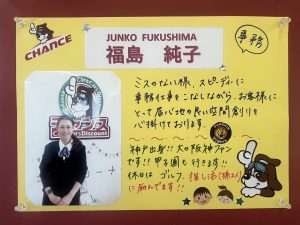 CHANCE
JUNKO FUKUSHIMA
福島 純子
事務
ミスのない様、スピーディーに
事務仕事をこなしながら、お客様に
とって居心地の良い空間創りを
心掛けております。
神戸出身!!大の阪神ファン
です!!甲子園も行きます!!
休日はゴルフ、推し活
に励んでます!!
Discount